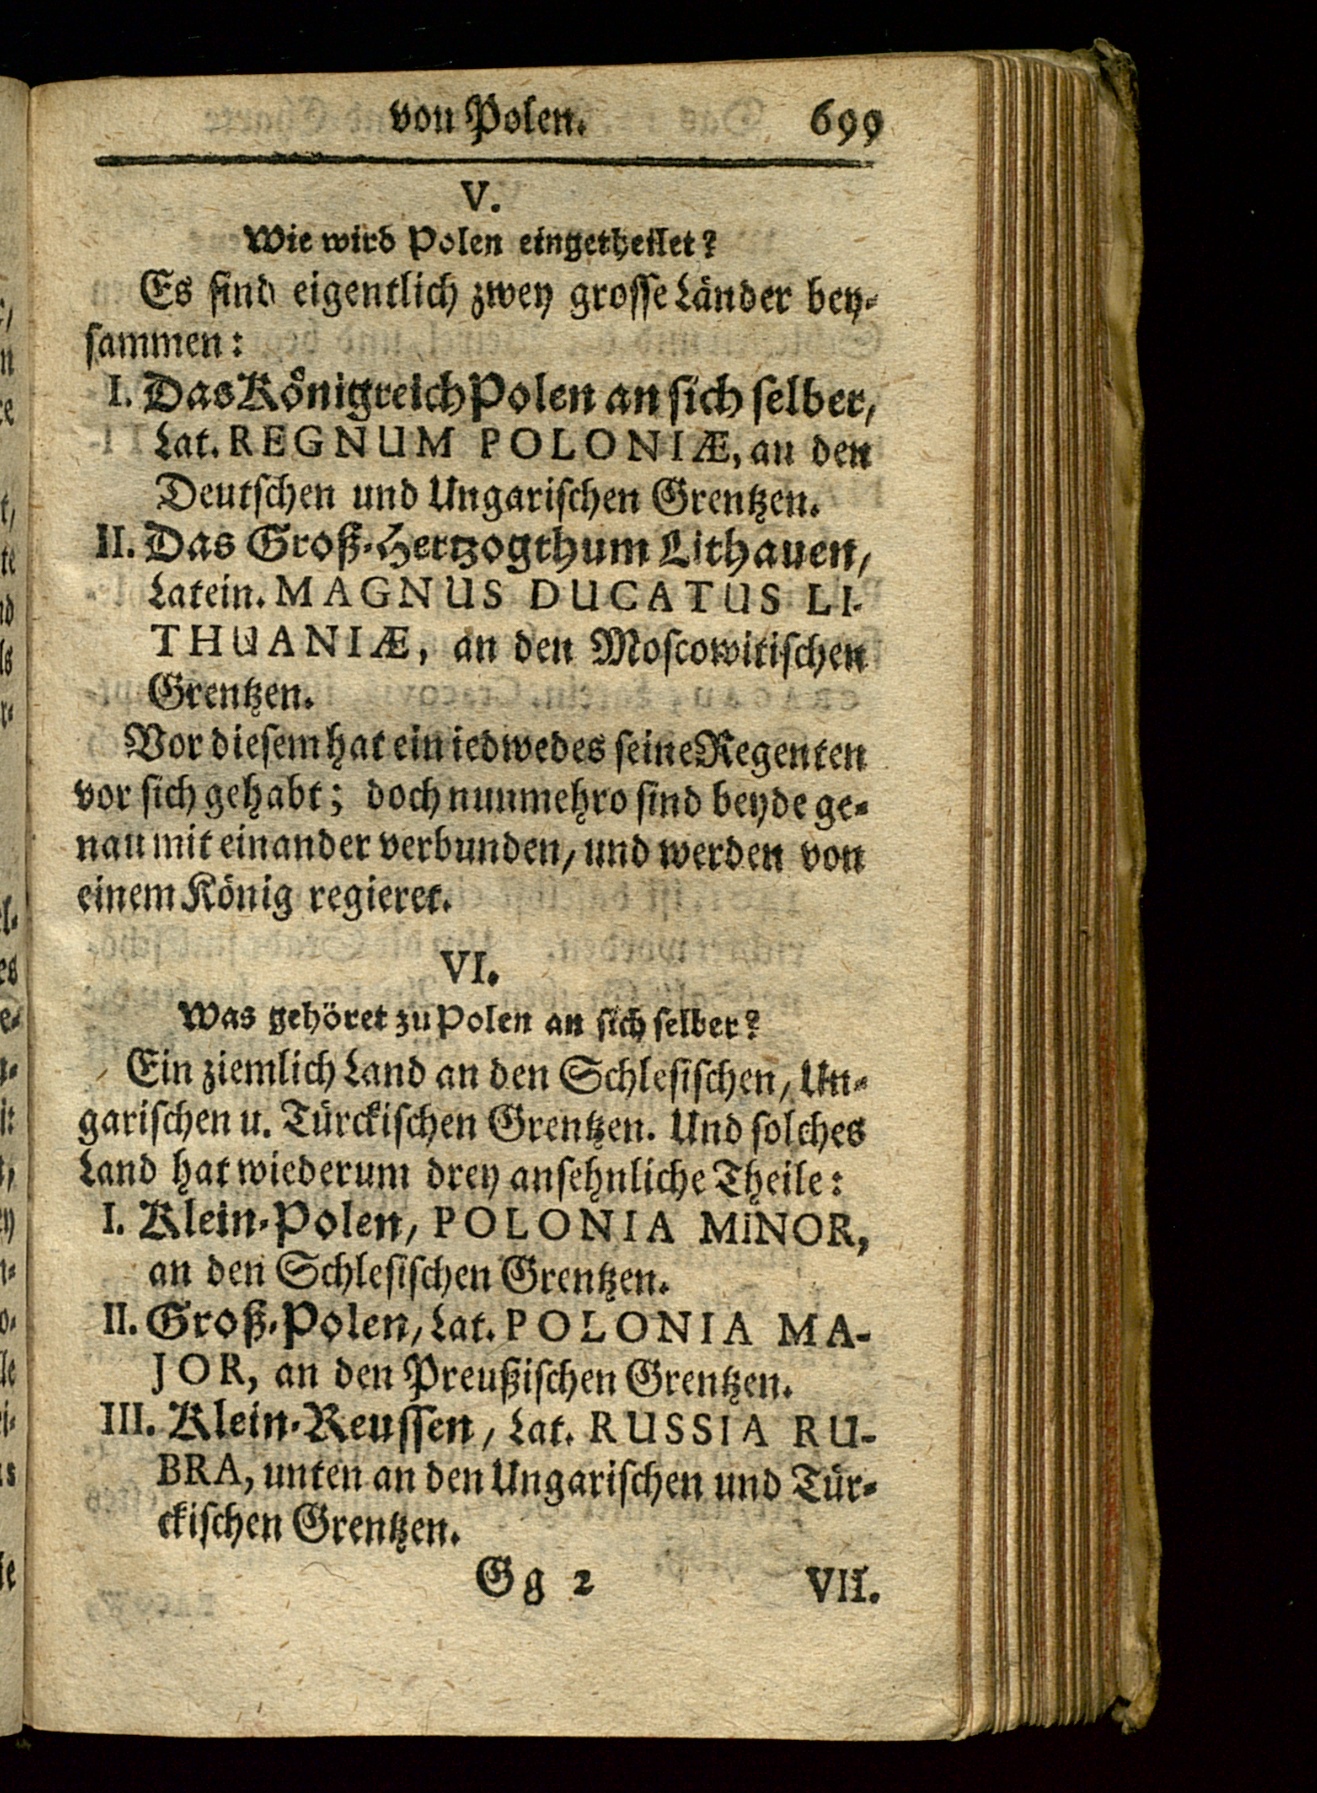 von Polen. 699
V.
Wie wird Polen eingetheilet?
Es sind eigentlich zwey grosse Länder bey-
sammen:
I. Das Königreich Polen an sich selber,
Lat. REGNUM POLONIÆ, an den
Deutschen und Ungarischen Grentzen.
II. Das Groß-Hertzogthum Lithauen,
Latein. MAGNUS DUCATUS LI-
THUANIÆ, an den Moscowitischen
Grentzen.
Vor diesem hat ein iedwedes seine Regenten
vor sich gehabt; doch nunmehro sind beyde ge-
nau mit einander verbunden, und werden von
einem König regieret.
VI.
Was gehöret zu Polen an sich selber?
Ein ziemlich Land an den Schlesischen, Un-
garischen u. Türckischen Grentzen. Und solches
Land hat wiederum drey ansehnliche Theile:
I. Klein-Polen, POLONIA MINOR,
an den Schlesischen Grentzen.
II. Groß-Polen, Lat. POLONIA MA-
JOR, an den Preußischen Grentzen.
III. Klein-Reussen, Lat. RUSSIA RU-
BRA, unten an den Ungarischen und Tür-
ckischen Grentzen.
Gg 2 VII.